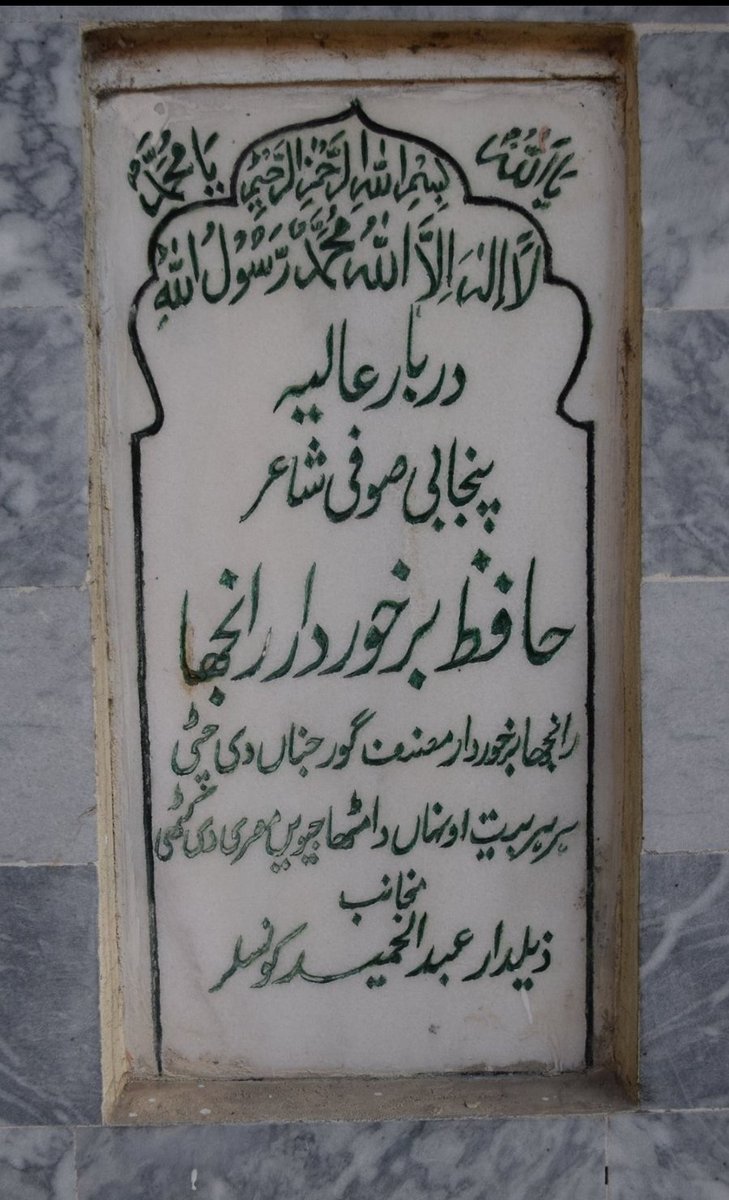 یَا اَللّٰهُ
بِسْمِ اللّٰهِ الرَّحْمٰنِ الرَّحِيْمِ
یَا مُحَمَّدُ
لَا اِلٰهَ اِلَّا اللّٰهُ مُحَمَّدٌ رَّسُوْلُ اللّٰهِ
دربار عالیہ
پنجابی صوفی شاعر
حافظ برخوردار رانجھا
رانجھا برخوردار مصنف گور جناں دی چٹی
ہر ہر بیت اونہاں دا مٹھا جیویں مصری دی
منجانب
ذیلدار عبدالحمید کونسلر